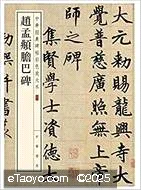 大元勅賜龍興寺大
覺普慈廣照無上
師之碑
集賢學士資德大
中華經典碑帖彩色放大本
趙孟頫膽巴碑
eTaoyo.com ©2025